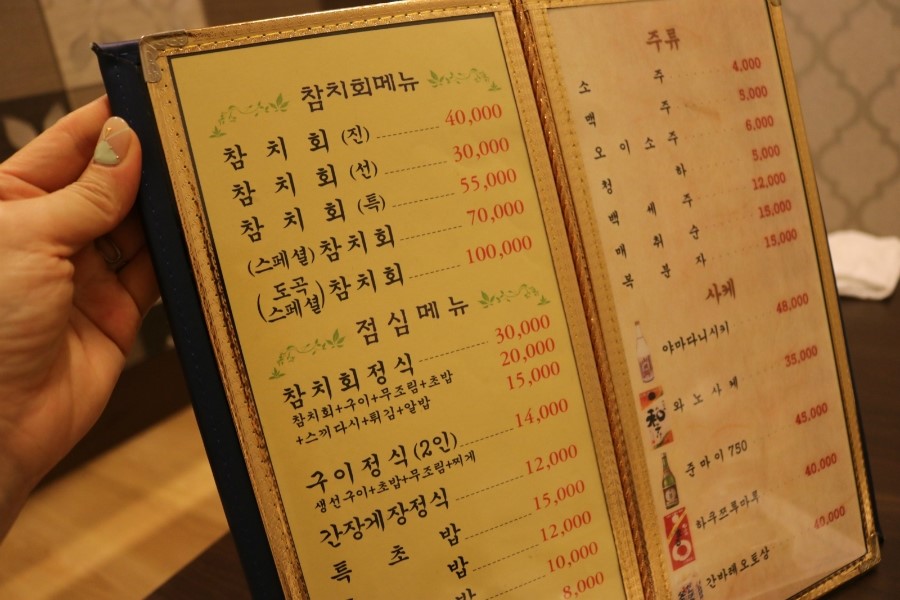 참치회메뉴
참 치 회 (진) 40,000
참 치 회 (선) 30,000
참 치 회 (특) 55,000
(스페셜) 참치회 70,000
(도곡 스페셜) 참치회 100,000
점심메뉴
참치회정식 30,000
20,000
15,000
참치회+구이+무조림+초밥
+스끼다시+튀김+알밥
구이정식 (2인) 14,000
생선구이+초밥+무조림+찌개
간장게장정식 12,000
특 초 밥 15,000
밥 12,000
밥 10,000
8,000
주류
소 주 4,000
백 주 5,000
오 이 소 주 6,000
청 하 5,000
백 세 주 12,000
매 취 순 15,000
복 분 자 15,000
사케
야마다니시키 48,000
와 노 사 케 35,000
준마이 750 45,000
하쿠쯔루마루 40,000
간바레오토상 40,000